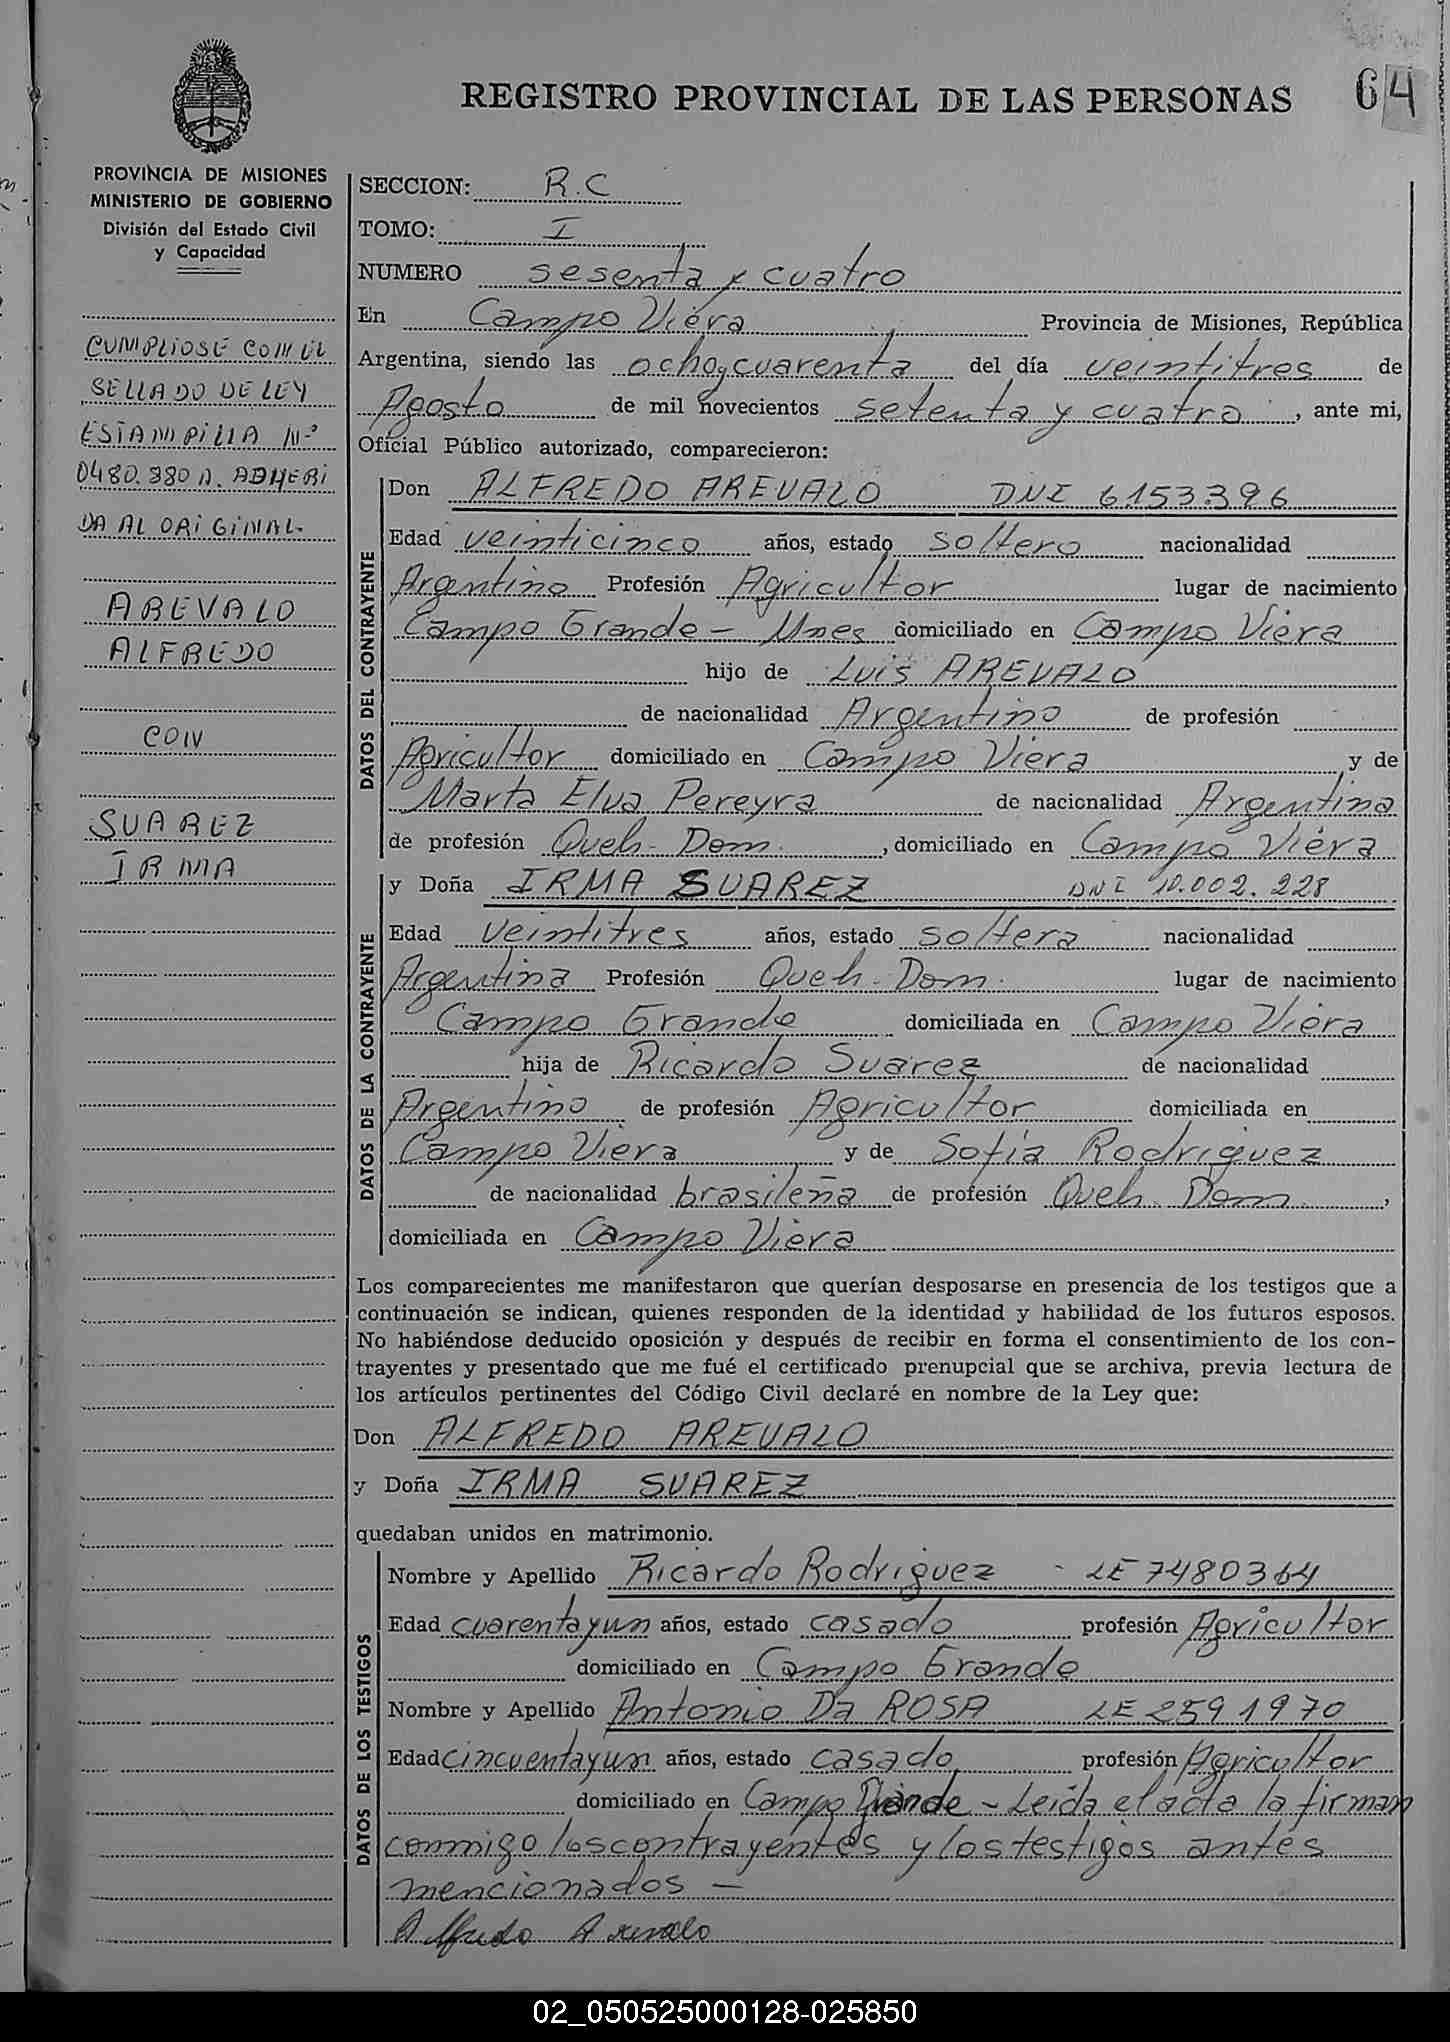 REGISTRO PROVINCIAL DE LAS PERSONAS 64
PROVINCIA DE MISIONES
MINISTERIO DE GOBIERNO
División del Estado Civil
y Capacidad
CUMPLIOSE CON EL
SELLADO DE LEY
ESTAMPILLA Nº
0480.380 A. ADHERI
DA AL ORIGINAL.
AREVALO
ALFREDO
CON
SUAREZ
IRMA
SECCION: R.C
TOMO: I
NUMERO sesenta y cuatro
En Campo Viera Provincia de Misiones, República
Argentina, siendo las ocho y cuarenta del día veintitres de
Agosto de mil novecientos setenta y cuatro, ante mi,
Oficial Público autorizado, comparecieron:
DATOS DEL CONTRAYENTE
Don ALFREDO AREVALO DNI 6153396
Edad veinticinco años, estado soltero nacionalidad
Argentino Profesión Agricultor lugar de nacimiento
Campo Grande - Mnes domiciliado en Campo Viera
hijo de Luis AREVALO
de nacionalidad Argentino de profesión
Agricultor domiciliado en Campo Viera y de
Marta Elva Pereyra de nacionalidad Argentina
de profesión Queh. Dom., domiciliado en Campo Viera
DATOS DE LA CONTRAYENTE
y Doña IRMA SUAREZ DNI 10.002.228
Edad veintitres años, estado soltera nacionalidad
Argentina Profesión Queh. Dom. lugar de nacimiento
Campo Grande domiciliada en Campo Viera
hija de Ricardo Suarez de nacionalidad
Argentino de profesión Agricultor domiciliada en
Campo Viera y de Sofia Rodriguez
de nacionalidad brasileña de profesión Queh. Dom.,
domiciliada en Campo Viera
Los comparecientes me manifestaron que querían desposarse en presencia de los testigos que a
continuación se indican, quienes responden de la identidad y habilidad de los futuros esposos.
No habiéndose deducido oposición y después de recibir en forma el consentimiento de los con-
trayentes y presentado que me fué el certificado prenupcial que se archiva, previa lectura de
los artículos pertinentes del Código Civil declaré en nombre de la Ley que:
Don ALFREDO AREVALO
y Doña IRMA SUAREZ
quedaban unidos en matrimonio.
DATOS DE LOS TESTIGOS
Nombre y Apellido Ricardo Rodriguez - LE 7480364
Edad cuarenta y un años, estado casado profesión Agricultor
domiciliado en Campo Grande
Nombre y Apellido Antonio Da ROSA LE 2591970
Edad cincuenta y un años, estado casado profesión Agricultor
domiciliado en Campo Grande - Leida el acta la firman
conmigo los contrayentes y los testigos antes
mencionados -
Alfredo Arevalo
02_050525000128-025850